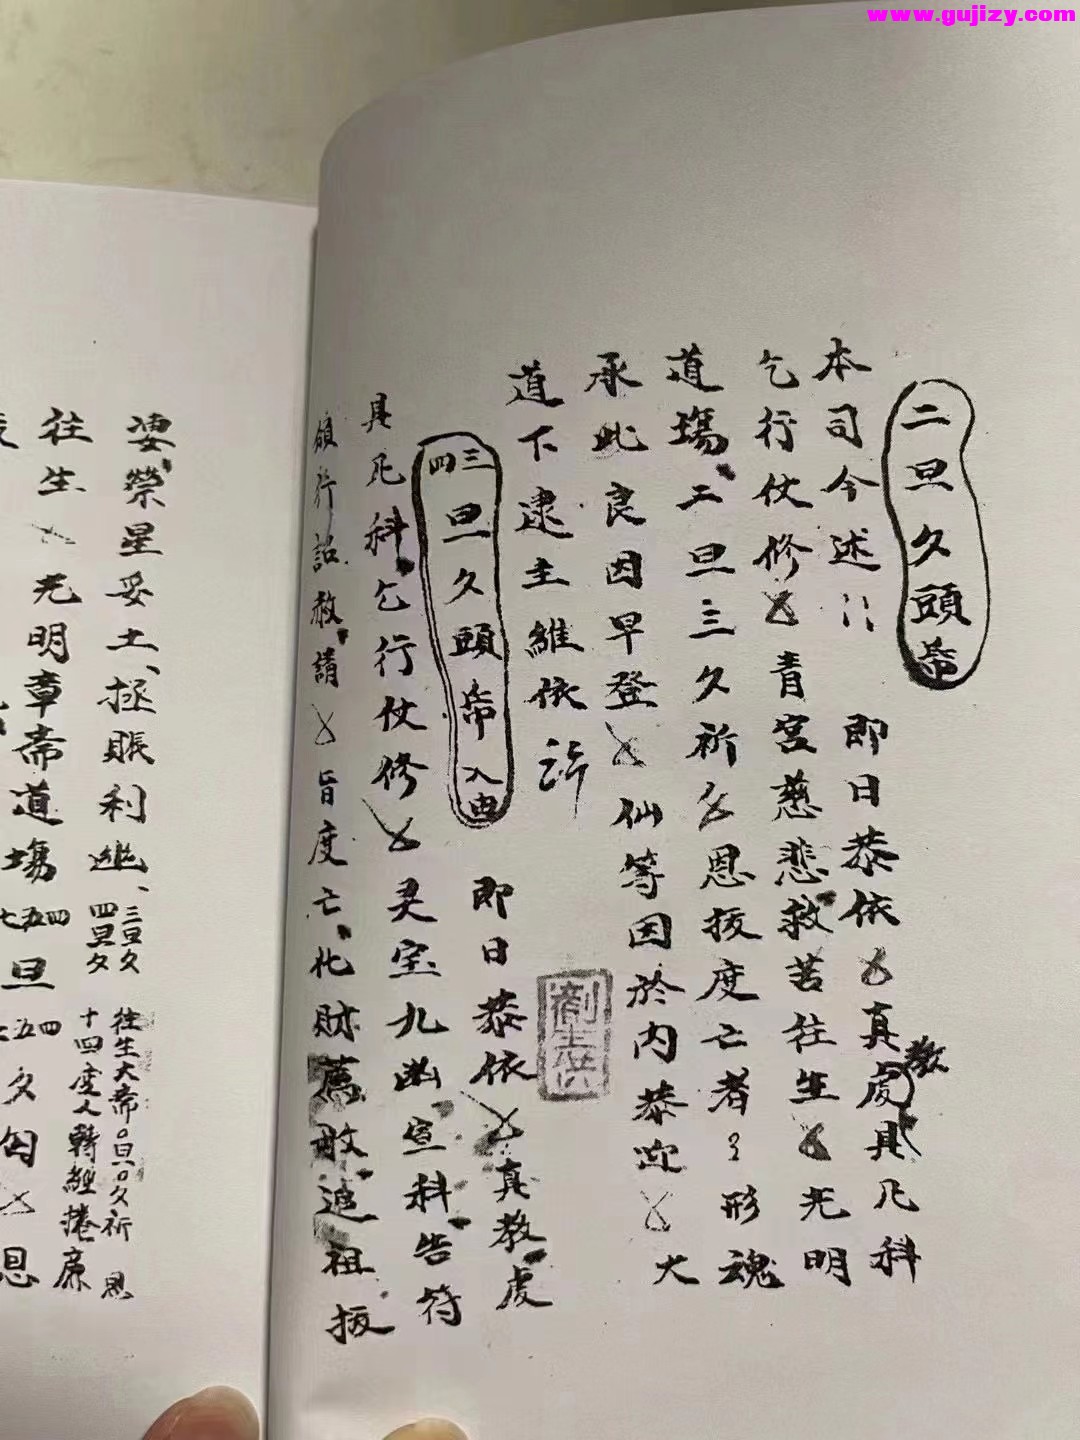 www.gujizy.com
二旦久頭帋
本司今述⺀⺀ 即日恭依㐅真虔教具凡科
乞行仗修㐅青宮慈悲救苦往生㐅光明
道場二旦三久祈㐅恩拔度亡者㇋形魂
承此良因早登㐅仙等因於内恭迎㐅大
道下逮主維依
三四旦久頭帋入由
即日恭依㐅真教虔
具凡科乞行仗修㐅灵宝九幽宣科告符
領行詔赦請㐅旨度亡化財薦敢追祖拔
凄榮星妥土、拯賬利幽、三旦久
四旦夕
往生大帝。旦。久祈 恩
十四度人轉經捲簾
往生㐅光明章斋道場四五七旦
四五 夕匃㐅恩